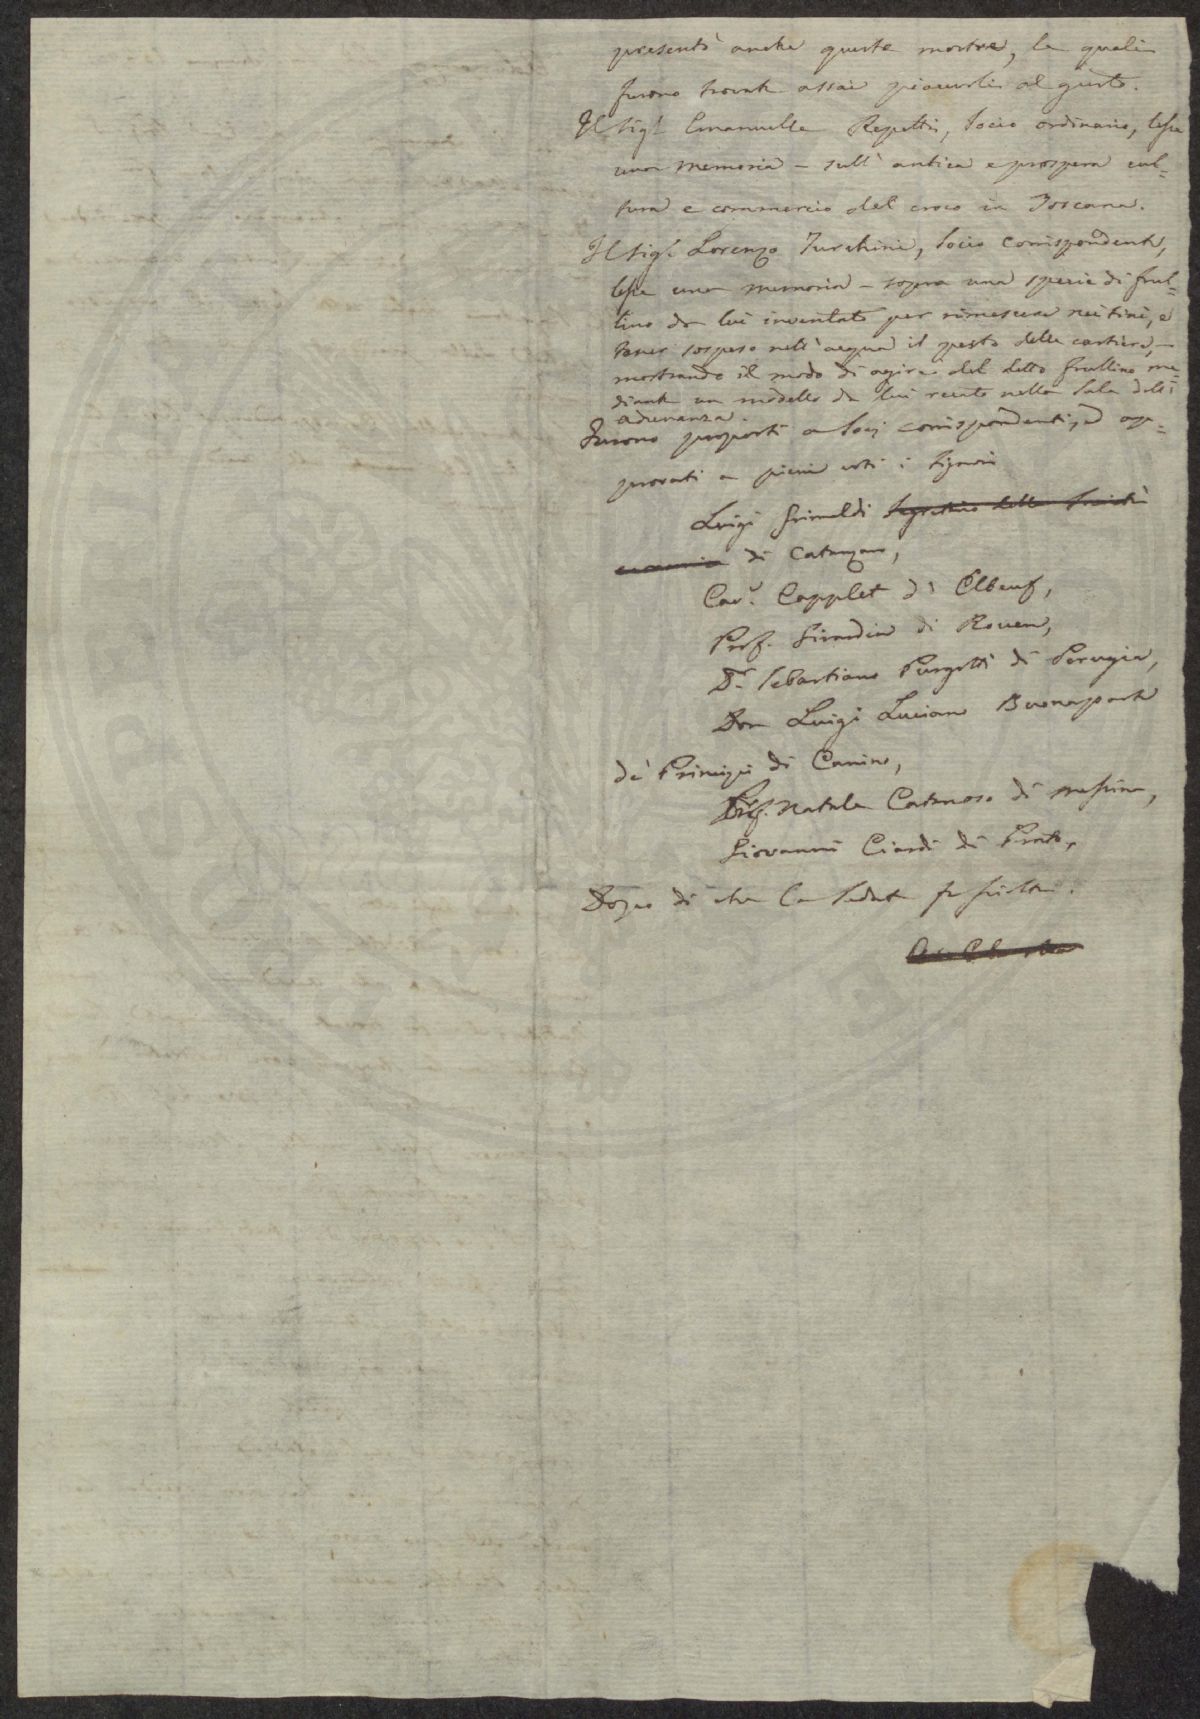 presentò anche queste mostre, le quali
furono trovate assai piacevoli al gusto.
Il Sig.r Emanuelle Repetti, Socio ordinario, lesse
una memoria – sull'antica e prospera cul=
tura e commercio del croco in Toscana.
Il Sig.r Lorenzo Turchini, Socio Corrispondente,
lesse una memoria – sopra una specie di frul=
lino da lui inventato per rimescere nei tini, e
tener sospeso nell'acqua il pesto delle cartiere, –
mostrando il modo di agire del detto frullino me=
diante un modello da lui recato nella Sala dell'
adunanza.
Furono proposti a Socj corrispondenti, ed ap=
provati a pieni voti i Signori
Luigi Grimaldi Segretario della Società
economica di Catanzaro,
Cav.r Capplet di Elbeuf,
Prof. Girardin di Rouen,
D.r Sebastiano Purgotti di Perugia,
Don Luigi Luciano Buonaparte
de' Principi di Canino,
Prof. Natale Catanoso di Messina,
Giovanni Ciardi di Prato,
Dopo di che la Seduta fu sciolta.